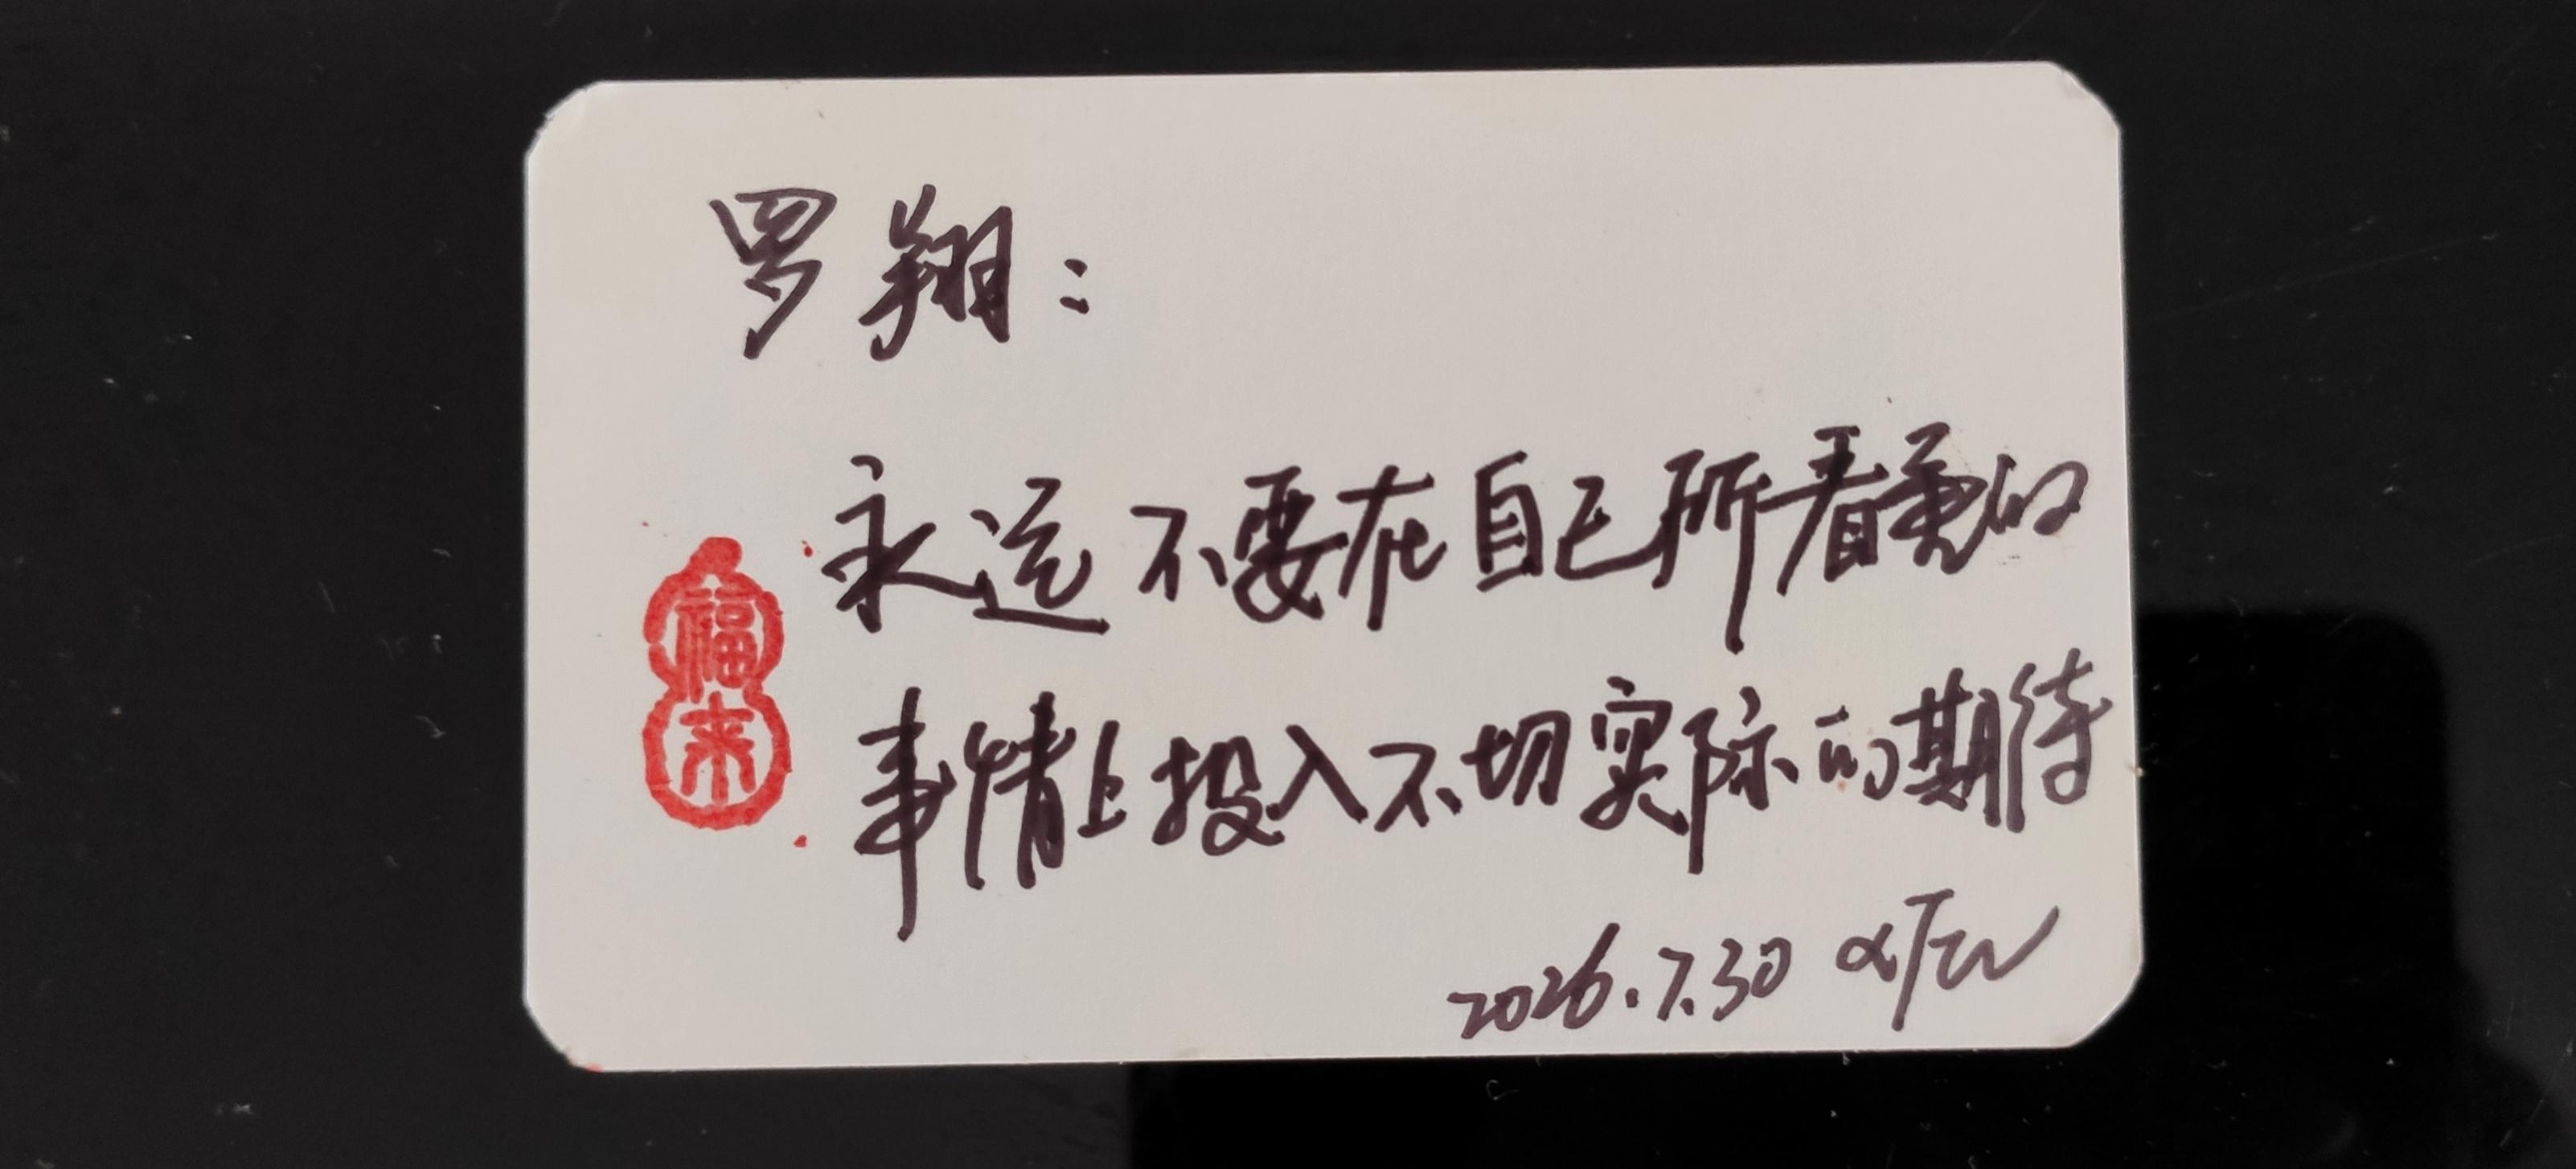 罗翔：
永远不要在自己所看重的
事情上投入不切实际的期待
2026.7.30
福来